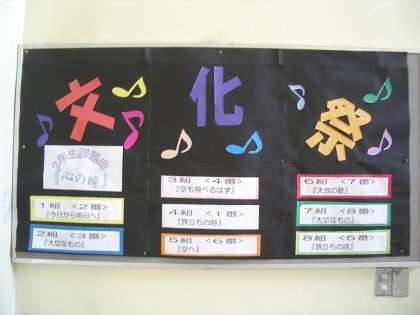 文化祭
2年生課題曲
『心の瞳』
1組 <2番>
『今日から明日へ』
2組 <3番>
『大切なもの』
3組 <4番>
『空も飛べるはず』
4組 <1番>
『旅立ちの時』
5組 <6番>
『空へ』
6組 <7番>
『大地の歌』
7組 <8番>
『大切なもの』
8組 <5番>
『旅立ちの時』